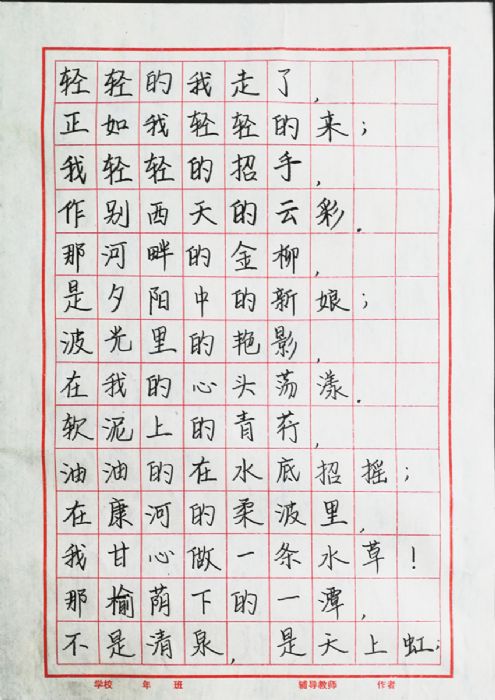 轻轻的我走了,
正如我轻轻的来;
我轻轻的招手,
作别西天的云彩.
那河畔的金柳,
是夕阳中的新娘;
波光里的艳影,
在我的心头荡漾.
软泥上的青荇,
油油的在水底招摇;
在康河的柔波里,
我甘心做一条水草!
那榆荫下的一潭,
不是清泉,是天上虹;
学校 年 班 辅导教师 作者